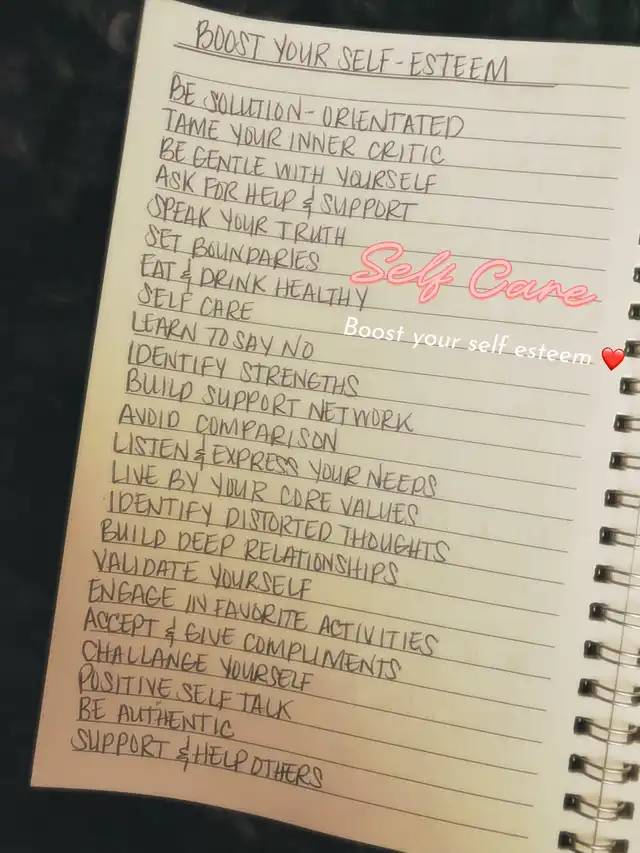 BOOST YOUR SELF-ESTEEM
BE SOLUTION-ORIENTATED
TAME YOUR INNER CRITIC
BE GENTLE WITH YOURSELF
ASK FOR HELP & SUPPORT
SPEAK YOUR TRUTH
SET BOUNDARIES
EAT & DRINK HEALTHY
SELF CARE
LEARN TO SAY NO
IDENTIFY STRENGTHS
BUILD SUPPORT NETWORK
AVOID COMPARISON
LISTEN & EXPRESS YOUR NEEDS
LIVE BY YOUR CORE VALUES
IDENTIFY DISTORTED THOUGHTS
BUILD DEEP RELATIONSHIPS
VALIDATE YOURSELF
ENGAGE IN FAVORITE ACTIVITIES
ACCEPT & GIVE COMPLIMENTS
CHALLANGE YOURSELF
POSITIVE SELF TALK
BE AUTHENTIC
SUPPORT & HELP OTHERS
Self Care
Boost your self esteem ❤️